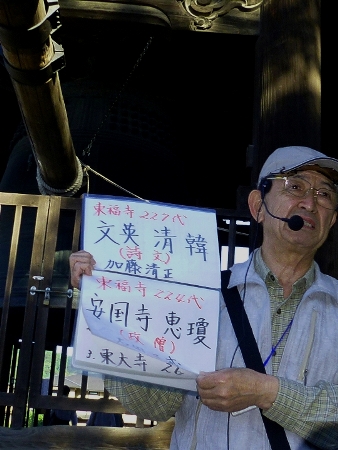 東福寺 227代
文英 清韓
(詩文)
加藤清正
東福寺 224代
安国寺 恵瓊
3. 東大寺